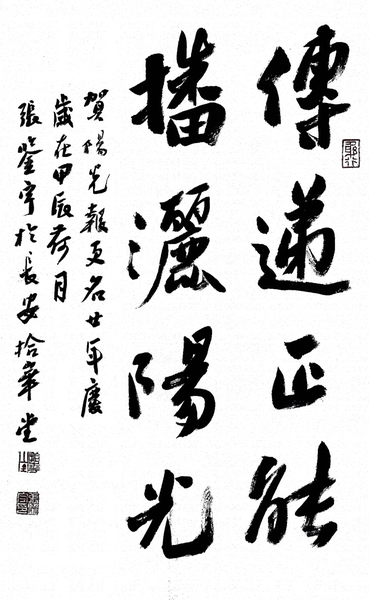 傳遞正能
播灑陽光
賀陽光報更名廿年慶
歲在甲辰荷月
張鑒宇於長安拾萃堂